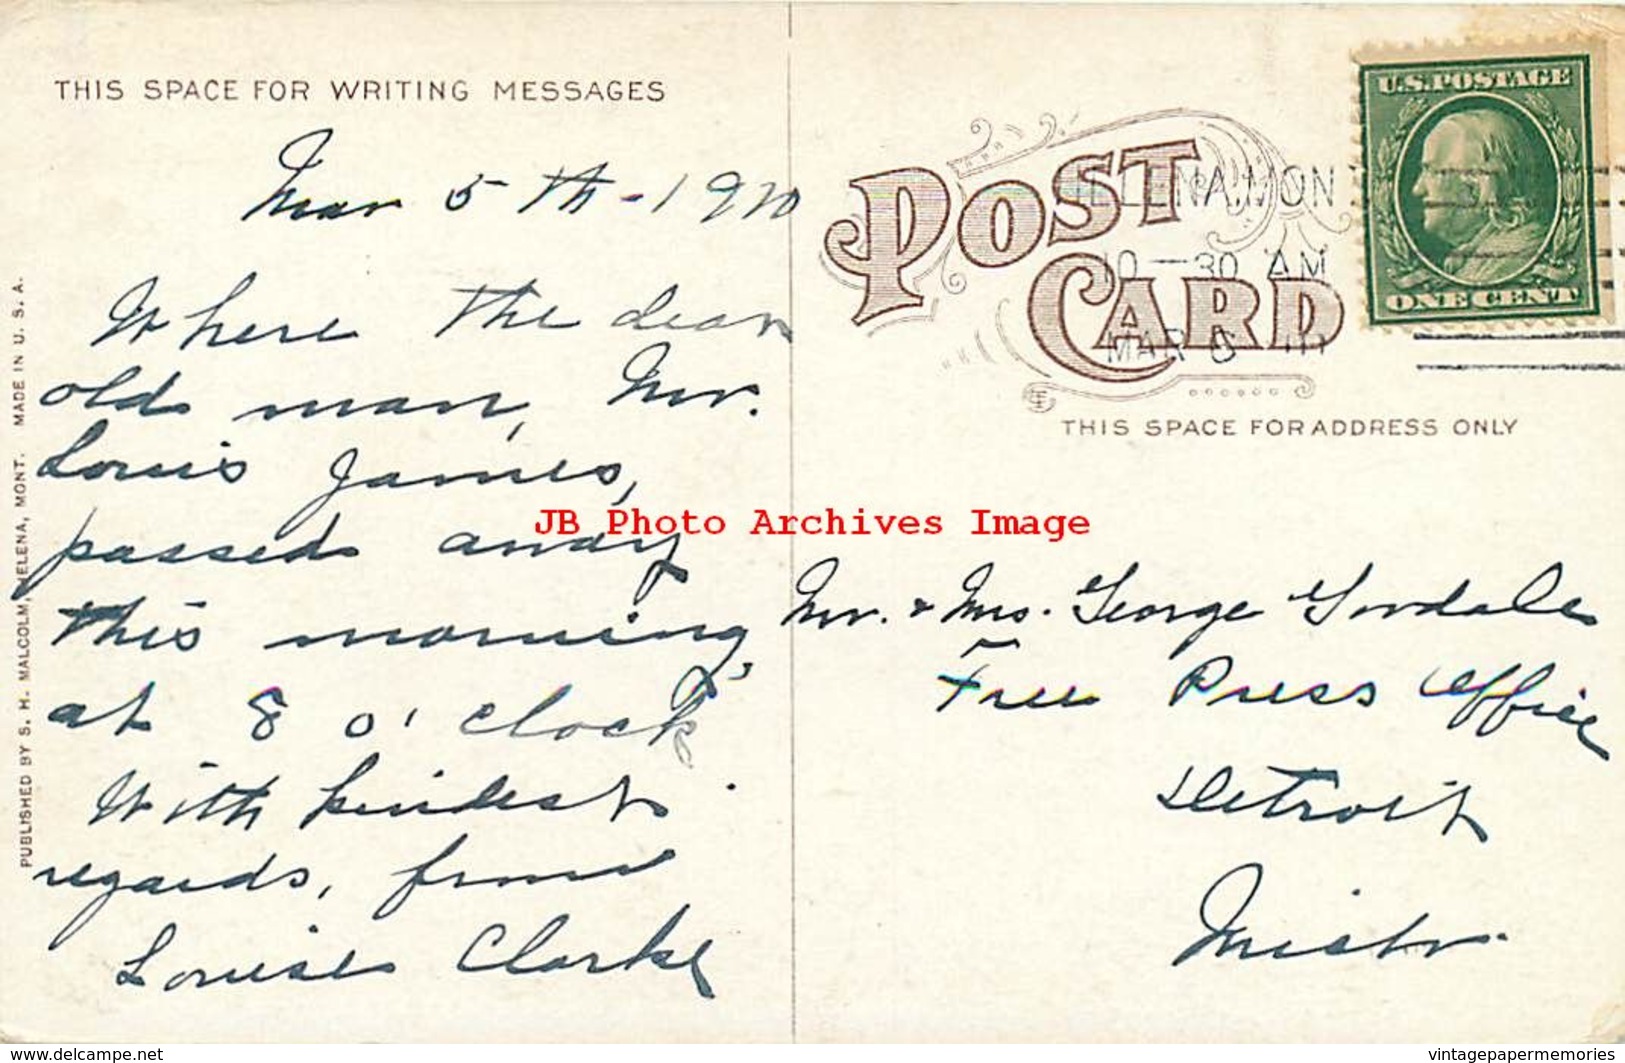 THIS SPACE FOR WRITING MESSAGES
Mar 5th-1910
Where the dear
old man, Mr.
Louis James,
passed away
this morning,
at 8 o'clock
With kindest
regards, from
Louise Clarke
PUBLISHED BY S. H. MALCOLM, HELENA, MONT. MADE IN U. S. A.
POST CARD
HELENA, MON
10-30 AM
MAR 5
U.S. POSTAGE
ONE CENT
THIS SPACE FOR ADDRESS ONLY
Mr. & Mrs. George
Free Press Office
Detroit
Mich.
JB Photo Archives Image
www.delcampe.net
vintagepapermemories